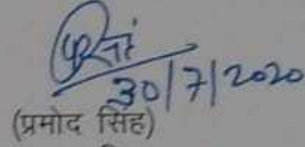 30/7/2020
(प्रमोद सिंह)